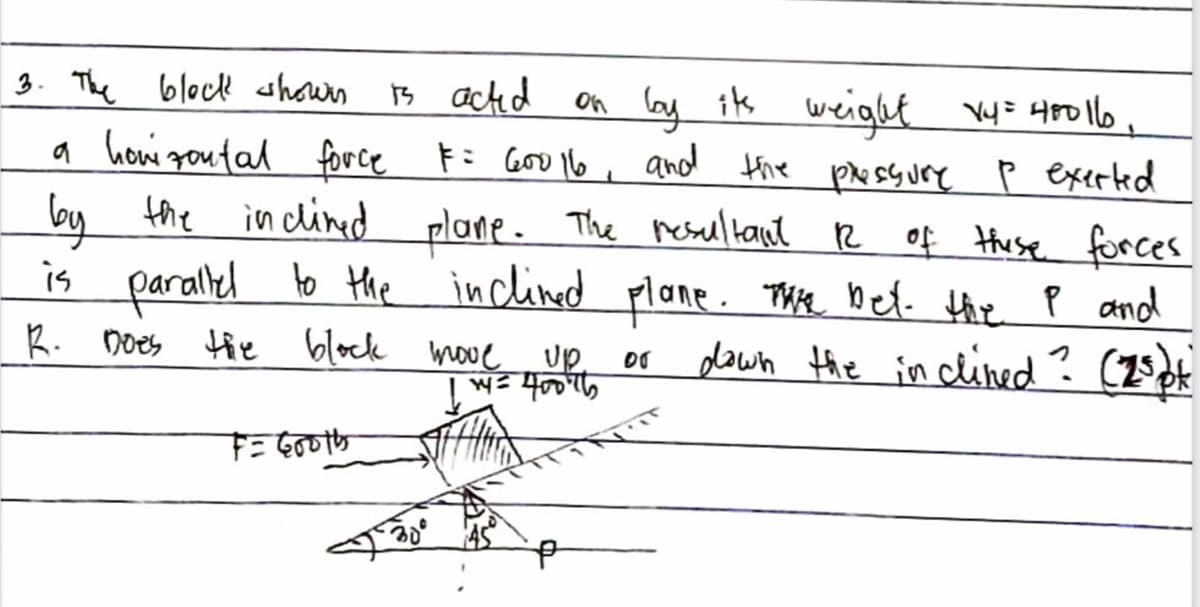 3. The block shown is acted on by its weight W = 400 lb,
a horizontal force F = 600 lb, and the pressure P exerted
by the inclined plane. The resultant R of these forces
is parallel to the inclined plane. Det. the P and
R. Does the block move up or down the inclined ? (25 pt
W = 400 lb
F = 600 lb
30° 45°
P